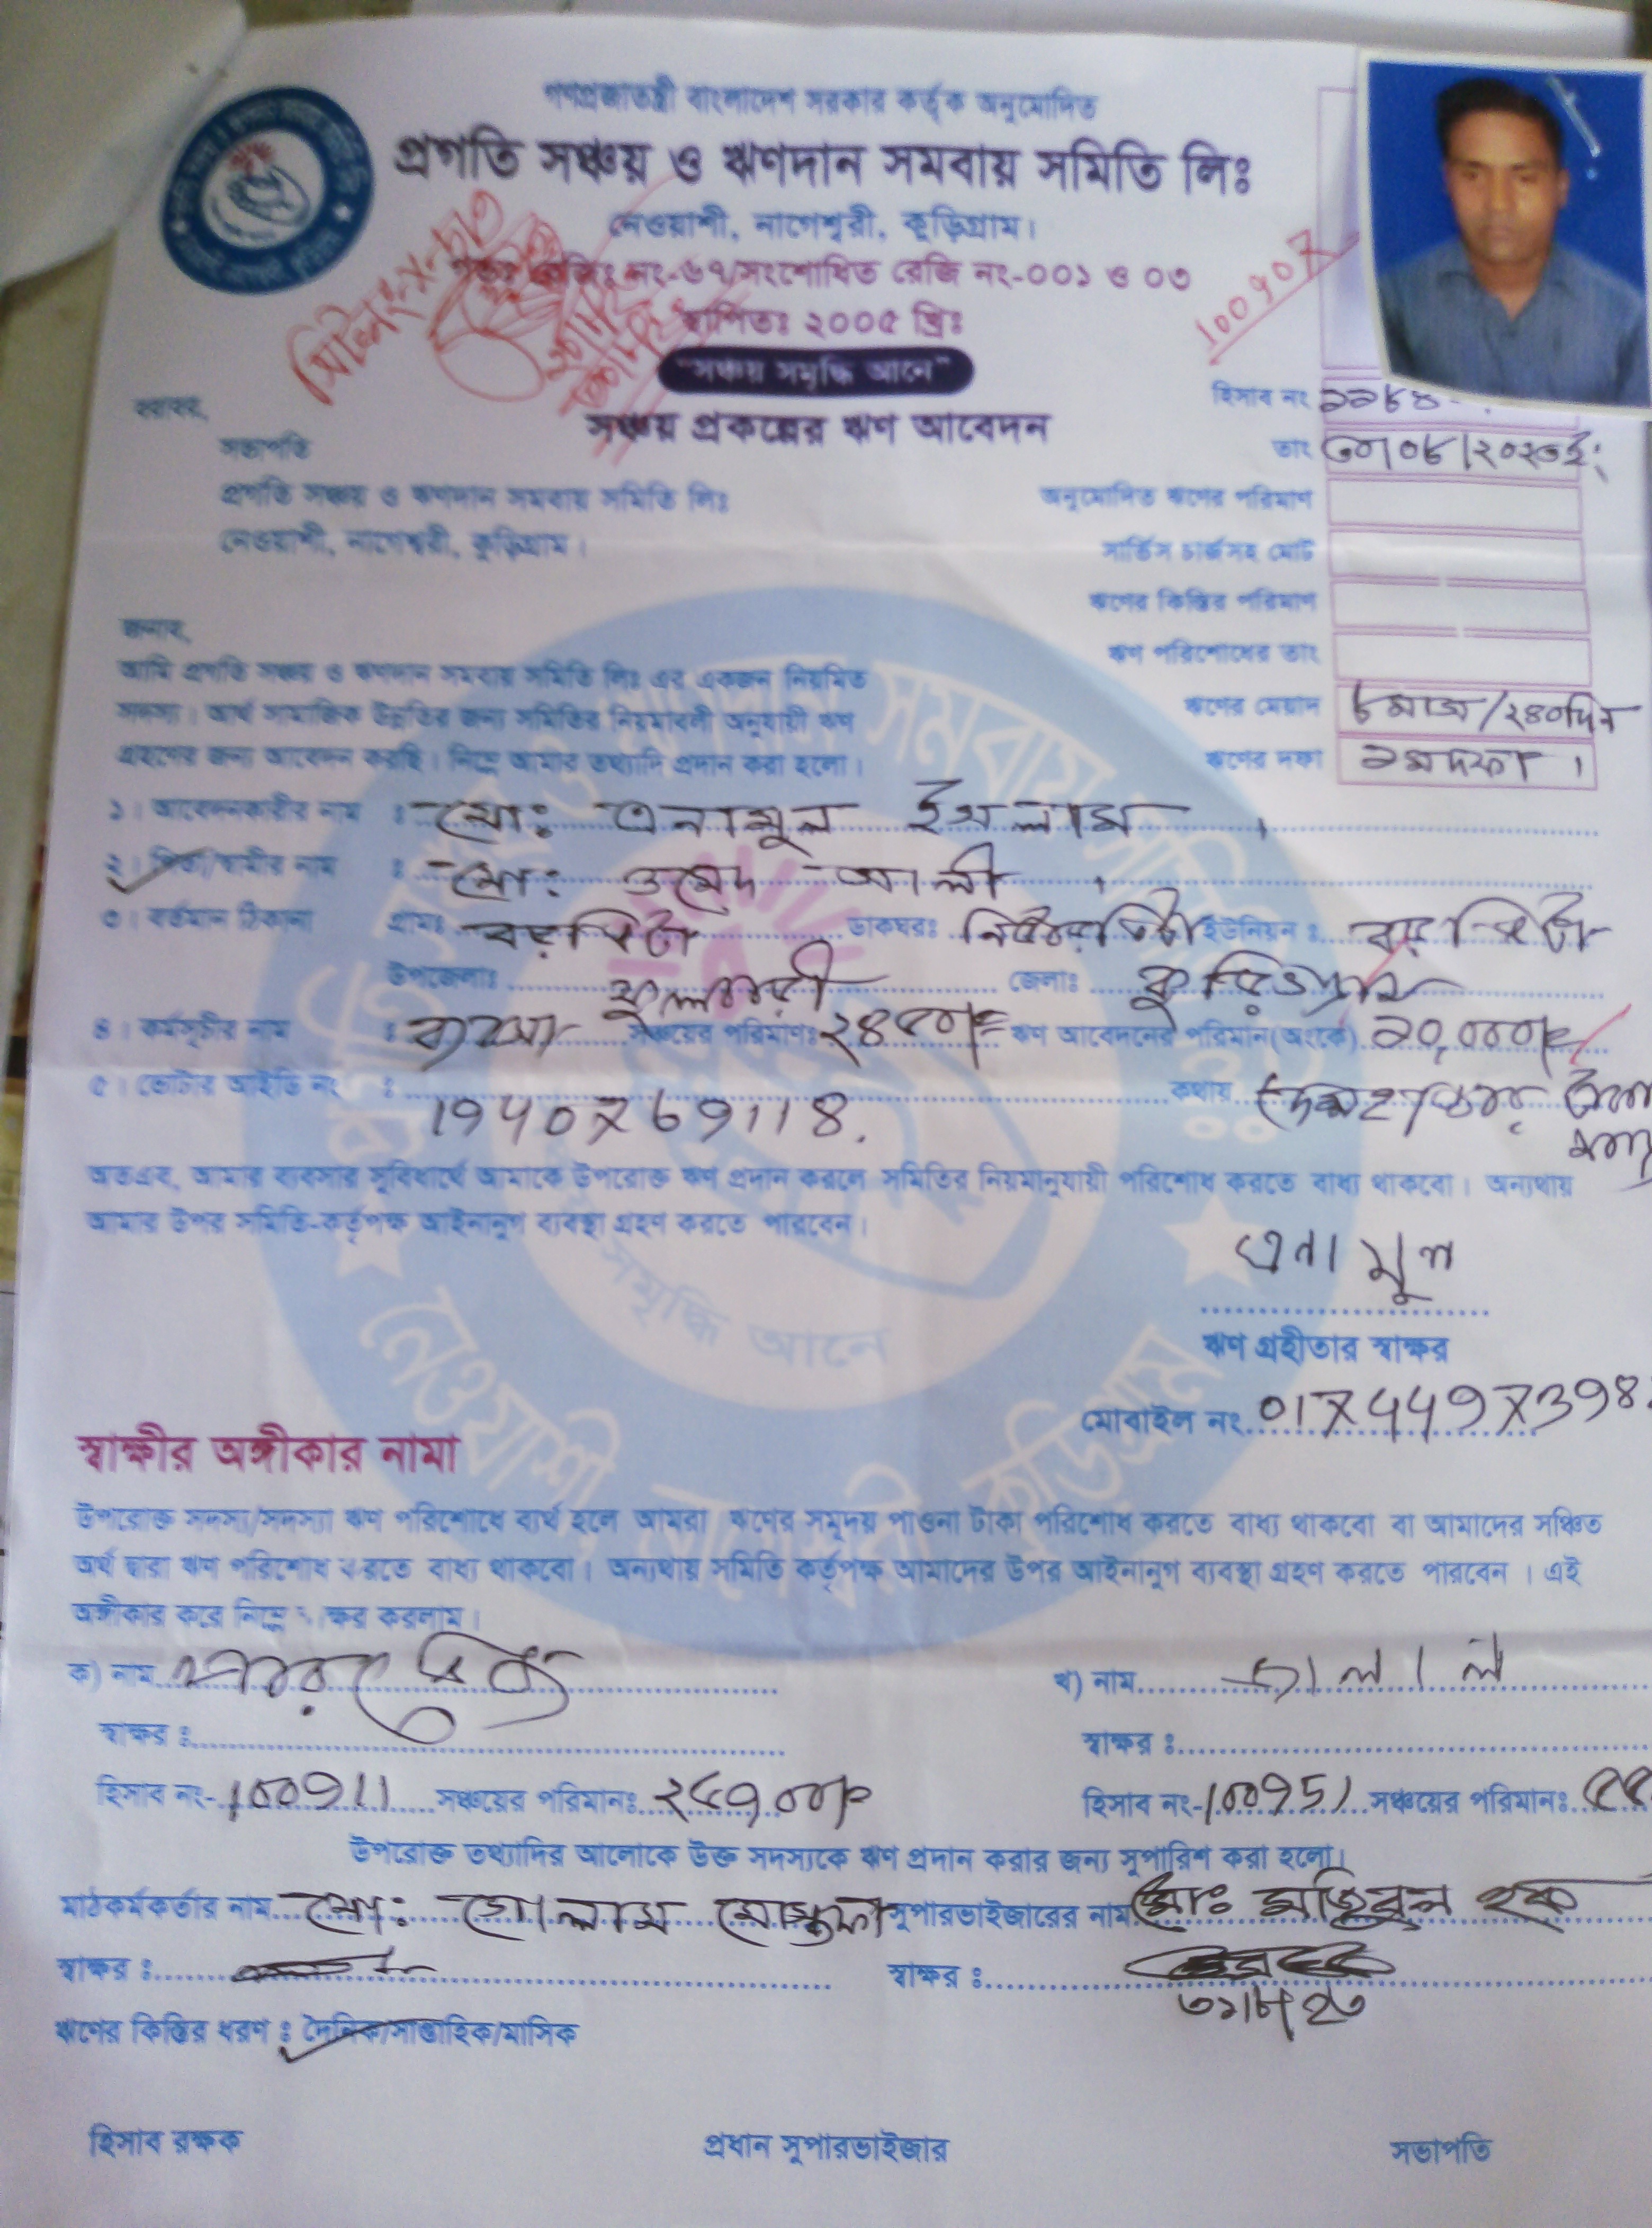 গণপ্রজাতন্ত্রী বাংলাদেশ সরকার কর্তৃক অনুমোদিত
প্রগতি সঞ্চয় ও ঋণদান সমবায় সমিতি লিঃ
নেওয়াশী, নাগেশ্বরী, কুড়িগ্রাম।
রেজিঃ নং-৬৭/সংশোধিত রেজি নং-০০১ ও ০৩
স্থাপিতঃ ২০০৫ খ্রিঃ
"সঞ্চয় সমৃদ্ধি আনে"
সঞ্চয় প্রকল্পের ঋণ আবেদন
হিসাব নং
তাং ৩০/০৮/২০২৩ ইং
বরাবর,
সভাপতি
প্রগতি সঞ্চয় ও ঋণদান সমবায় সমিতি লিঃ
নেওয়াশী, নাগেশ্বরী, কুড়িগ্রাম।
অনুমোদিত ঋণের পরিমাণ
সার্ভিস চার্জসহ মোট
ঋণের কিস্তির পরিমাণ
ঋণ পরিশোধের তাং
ঋণের মেয়াদ ৮ মাস/২৪০ দিন
ঋণের দফা ১ম দফা।
জনাব,
আমি প্রগতি সঞ্চয় ও ঋণদান সমবায় সমিতি লিঃ এর একজন নিয়মিত
সদস্য। আর্থ সামাজিক উন্নতির জন্য সমিতির নিয়মাবলী অনুযায়ী ঋণ
গ্রহণের জন্য আবেদন করছি। নিম্নে আমার তথ্যাদি প্রদান করা হলো।
১। আবেদনকারীর নাম : মোঃ এনামুল ইসলাম।
২। পিতা/স্বামীর নাম : মোঃ ওমেদ আলী।
৩। বর্তমান ঠিকানা গ্রামঃ বড়ভিটা ডাকঘরঃ ইউনিয়ন : বড়ভিটা
উপজেলাঃ ফুলবাড়ী জেলাঃ কুড়িগ্রাম
৪। কর্মসূচীর নাম : ব্যবসা সঞ্চয়ের পরিমাণঃ ২৪৫০/= ঋণ আবেদনের পরিমান(অংকে) ২০,০০০/=
৫। ভোটার আইডি নং : 1940769118. কথায়
অতএব, আমার ব্যবসার সুবিধার্থে আমাকে উপরোক্ত ঋণ প্রদান করলে সমিতির নিয়মানুযায়ী পরিশোধ করতে বাধ্য থাকবো। অন্যথায়
আমার উপর সমিতি-কর্তৃপক্ষ আইনানুগ ব্যবস্থা গ্রহণ করতে পারবেন।
এনামুল
ঋণ গ্রহীতার স্বাক্ষর
মোবাইল নং. 0174497398
স্বাক্ষীর অঙ্গীকার নামা
উপরোক্ত সদস্য/সদস্যা ঋণ পরিশোধে ব্যর্থ হলে আমরা ঋণের সমুদয় পাওনা টাকা পরিশোধ করতে বাধ্য থাকবো বা আমাদের সঞ্চিত
অর্থ দ্বারা ঋণ পরিশোধ করতে বাধ্য থাকবো। অন্যথায় সমিতি কর্তৃপক্ষ আমাদের উপর আইনানুগ ব্যবস্থা গ্রহণ করতে পারবেন। এই
অঙ্গীকার করে নিম্নে ক্ষর করলাম।
ক) নাম খ) নাম জালাল
স্বাক্ষর : স্বাক্ষর :
হিসাব নং- 100911 সঞ্চয়ের পরিমানঃ হিসাব নং- 100951 সঞ্চয়ের পরিমানঃ
উপরোক্ত তথ্যাদির আলোকে উক্ত সদস্যকে ঋণ প্রদান করার জন্য সুপারিশ করা হলো।
মাঠকর্মকর্তার নাম মোঃ গোলাম মোস্তফা সুপারভাইজারের নাম মোঃ মজিবুল হক
স্বাক্ষর : স্বাক্ষর :
৩১/৮/২৩
ঋণের কিস্তির ধরণ : দৈনিক/সাপ্তাহিক/মাসিক
হিসাব রক্ষক প্রধান সুপারভাইজার সভাপতি